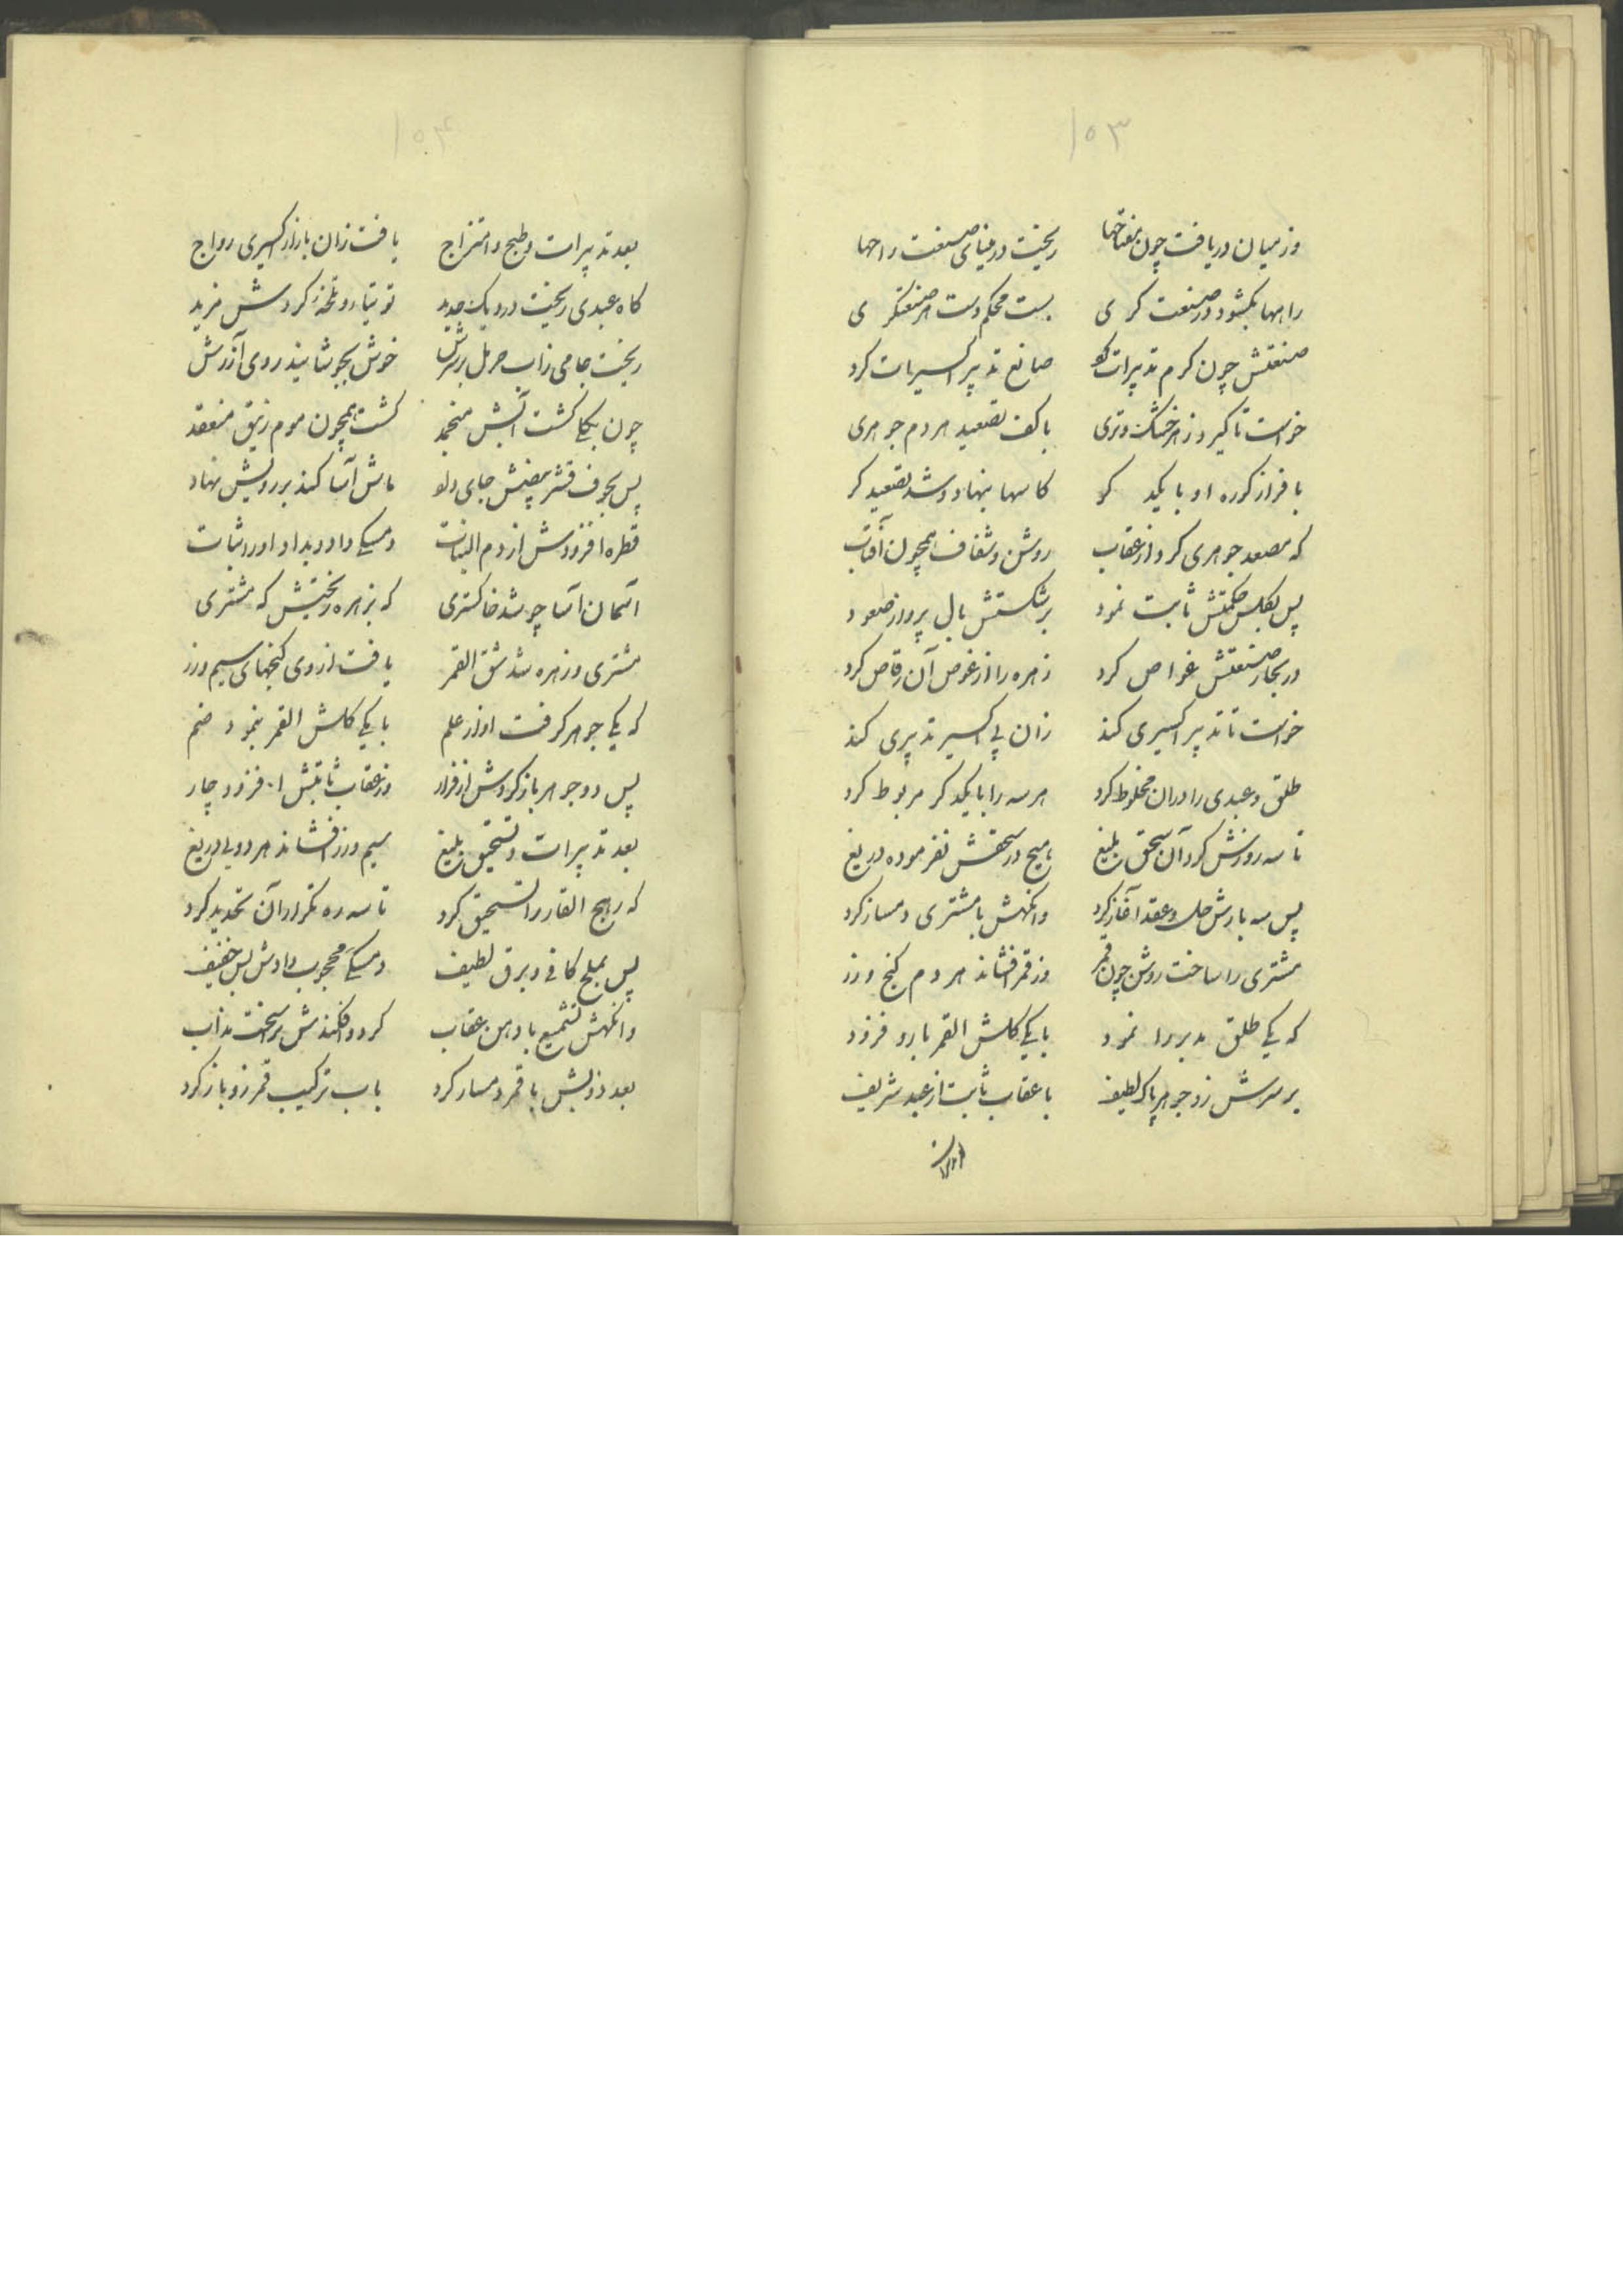 ۱۵۳
وز میان دریافت چون مفتاحها ریخت در مینای صنعت راحها
راهها بکشود در صنعت کری بست محکم دست هر صنعتکری
صنعتش چون کرم تدبیرات صانع تدبیر اکسیریات کرد
خواست تا کیرد ز هر خشک و تری با کف تصعید هر دم جوهری
با فراز کوره او با یکد کر کاسها بنهاد و شد تصعید کر
که مصعد جوهری کرد از عقاب روشن و شفاف همچون آفتاب
پس بکلس حکمتش ثابت نمود برشکستش بال پرواز صعود
در بحار صنعتش غواص کرد زهره را از غوص آن رقاص کرد
خواست تا تدبیر اکسیری کند زان پی اکسیر تدبیری کند
طلق و عبدی را دران مخلوط کرد هر سه را با یکدکر مربوط کرد
تا سه روزش کرد آن سحق بلیغ هیچ در سحقش نفرموده دریغ
پس سه بارش حل و عقد آغاز کرد وانکهش با مشتری دمساز کرد
مشتری را ساخت روشن چون قمر وز قمر افشاند هر دم کنج و زر
که یکی طلق مدبر را نمود با یکی کلس القمر بارو فزود
بر سرش زد جوهر پاک لطیف با عقاب ثابت از عبد شریف
۱۵۴
بعد تدبیرات و طبخ و امتزاج یافت زان بازار اکسیری رواج
کاه عبدی ریخت در دیک حدید توتیا رو ملحه کردش مزید
ریخت جامی زاب حرمل بر سرش خوش بجوشانید روی آذرش
چون بیکجا کشت آبش منجمد کشت همچون موم زیبق منعقد
پس بجوف قشر بیضش جای داد ماش آسا کند بر رویش نهاد
قطره افزودش از دم النبات دمسکی داد و بداد او را ثبات
آسمان آسا چو شد خاکستری که بزهره ریختیش که مشتری
مشتری و زهره شد شق القمر یافت از وی کنجهای سیم و زر
که یکی جوهر کرفت او از علم با یکی کلس القمر بنمود ضم
پس دو جوهر باز کردش از فرار وز عقاب ثابتش افزود چار
بعد تدبیرات و تسحیق بلیغ سیم و زر افشاند هر دو بی دریغ
که رهج الفار را تسحیق کرد تا سه ره تکرار آن تحدید کرد
پس بملح کافی و برق لطیف دمسکی محجوب دادش بس خفیف
وانکهش تشمیع با دهن عقاب کرد و افکندش برسخت مذاب
بعد ذوبش با قمر دمساز کرد باب ترکیب قمر زو باز کرد